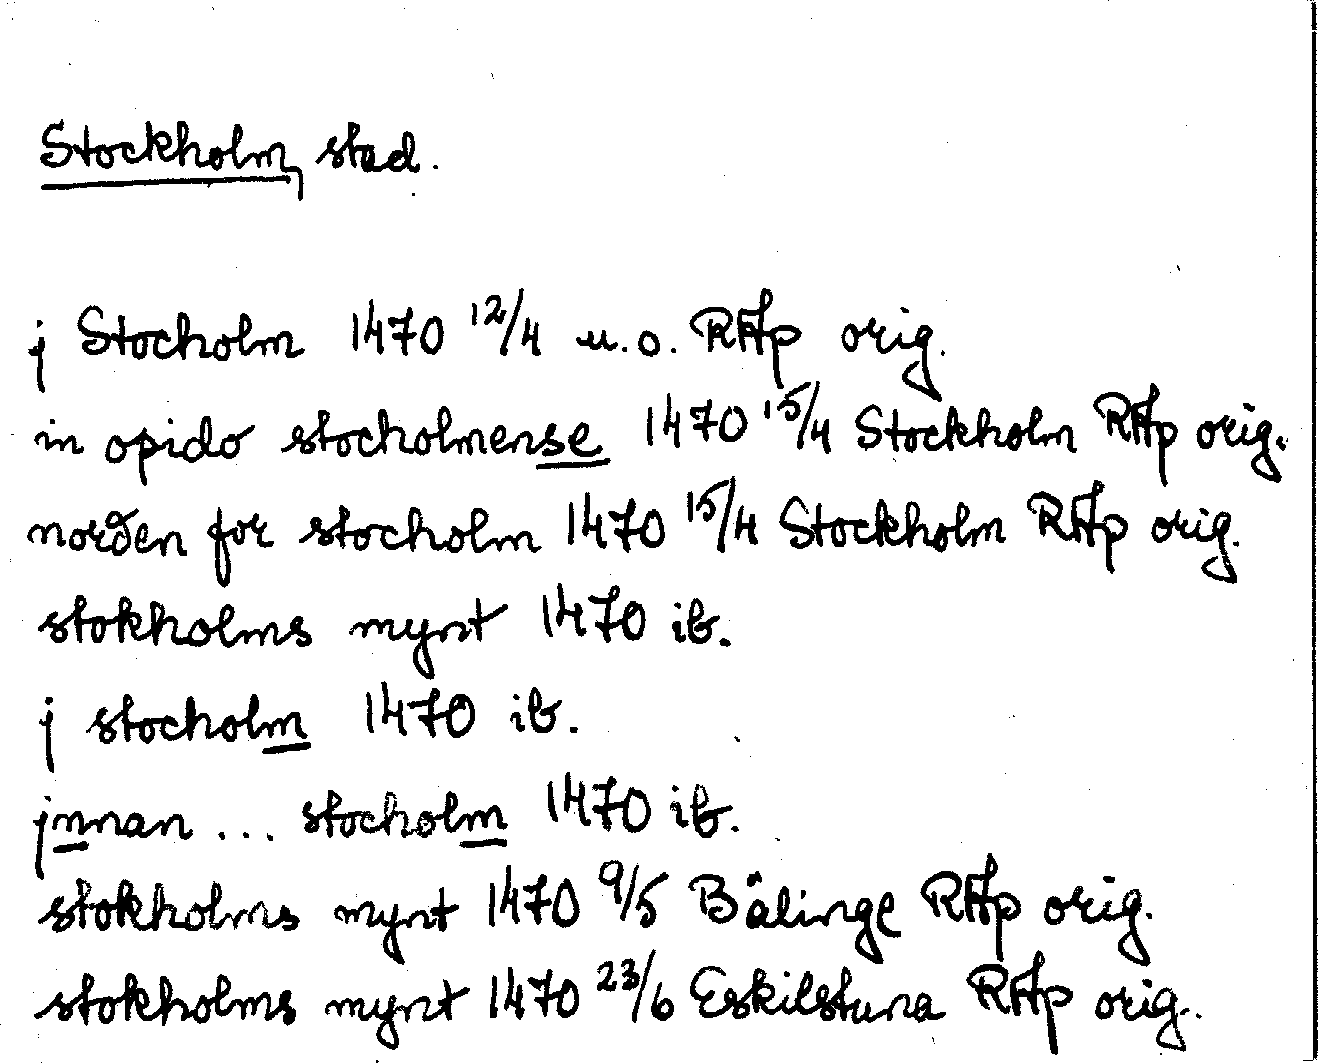 Stockholm, stad.
j Stocholm 1470 12/4 u.o. RAp orig.
in opido stocholmense 1470 15/4 Stockholm RAp orig.
norden for stocholm 1470 15/4 Stockholm RAp orig.
stokholms mynt 1470 ib.
j stocholm 1470 ib.
jnnan ... stocholm 1470 ib.
stokholms mynt 1470 9/5 Bälinge RAp orig.
stokholms mynt 1470 23/6 Eskilstuna RAp orig.